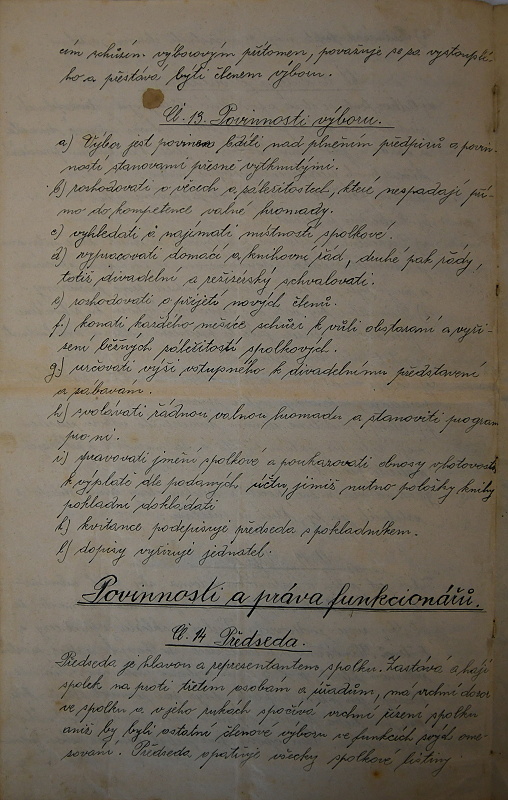 cím schůzím výborovým přítomen, považuje se za vystoupli-
ho a přestává býti členem výboru.
Čl. 13. Povinnosti výboru.
a) Výbor jest povinen bdíti nad plněním předpisů a povin-
ností stanovami přesně vytknutými.
b) rozhodovati o věcech a záležitostech, které nespadají pří-
mo do kompetence valné hromady.
c) vyhledati a najímati místnosti spolkové.
d) vypracovati domácí a knihovní řád, druhé pak řády,
totiž divadelní a režisérský schvalovati.
e) rozhodovati o přijetí nových členů.
f) konati každého měsíce schůzi k vůli obstarání a vyří-
zení běžných záležitostí spolkových.
g) určovati výši vstupného k divadelnímu představení
a zábavám.
h) svolávati řádnou valnou hromadu a stanoviti program
pro ni.
i) spravovati jmění spolkové a poukazovati obnosy v hotovosti
k výplatě dle podaných účtů, jimiž nutno položky knihy
pokladní dokládati
k) kvitance podepisuje předseda s pokladníkem.
l) dopisy vyřizuje jednatel.
Povinnosti a práva funkcionářů.
Čl. 14 Předseda.
Předseda je hlavou a representantem spolku. Zastává a hájí
spolek na proti třetím osobám a úřadům, má vrchní dozor
ve spolku a v jeho rukách spočívá vrchní řízení spolku
aniž by byli ostatní členové výboru ve funkcích svých ome-
zováni. Předseda opatruje všecky spolkové listiny